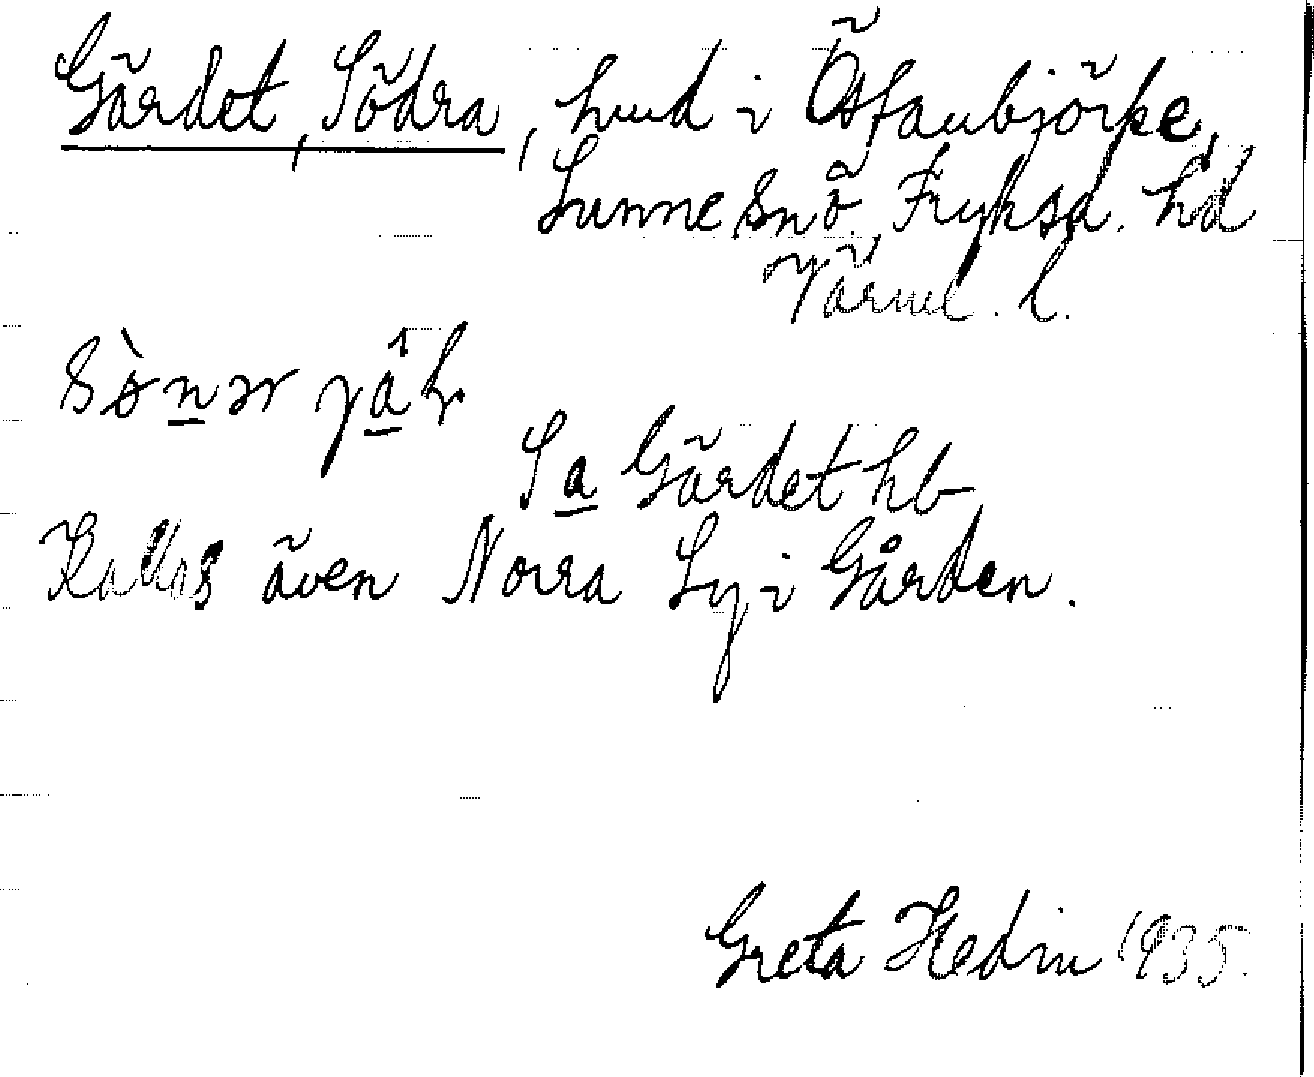 Gärdet, Södra, hmd i Östanbjörke,
Sunne sn ö. Fryksd. hd
Värml. l.
Sa Gärdet hb
Kallas även Norra Ly i Gården.
Greta Hedin 1935.